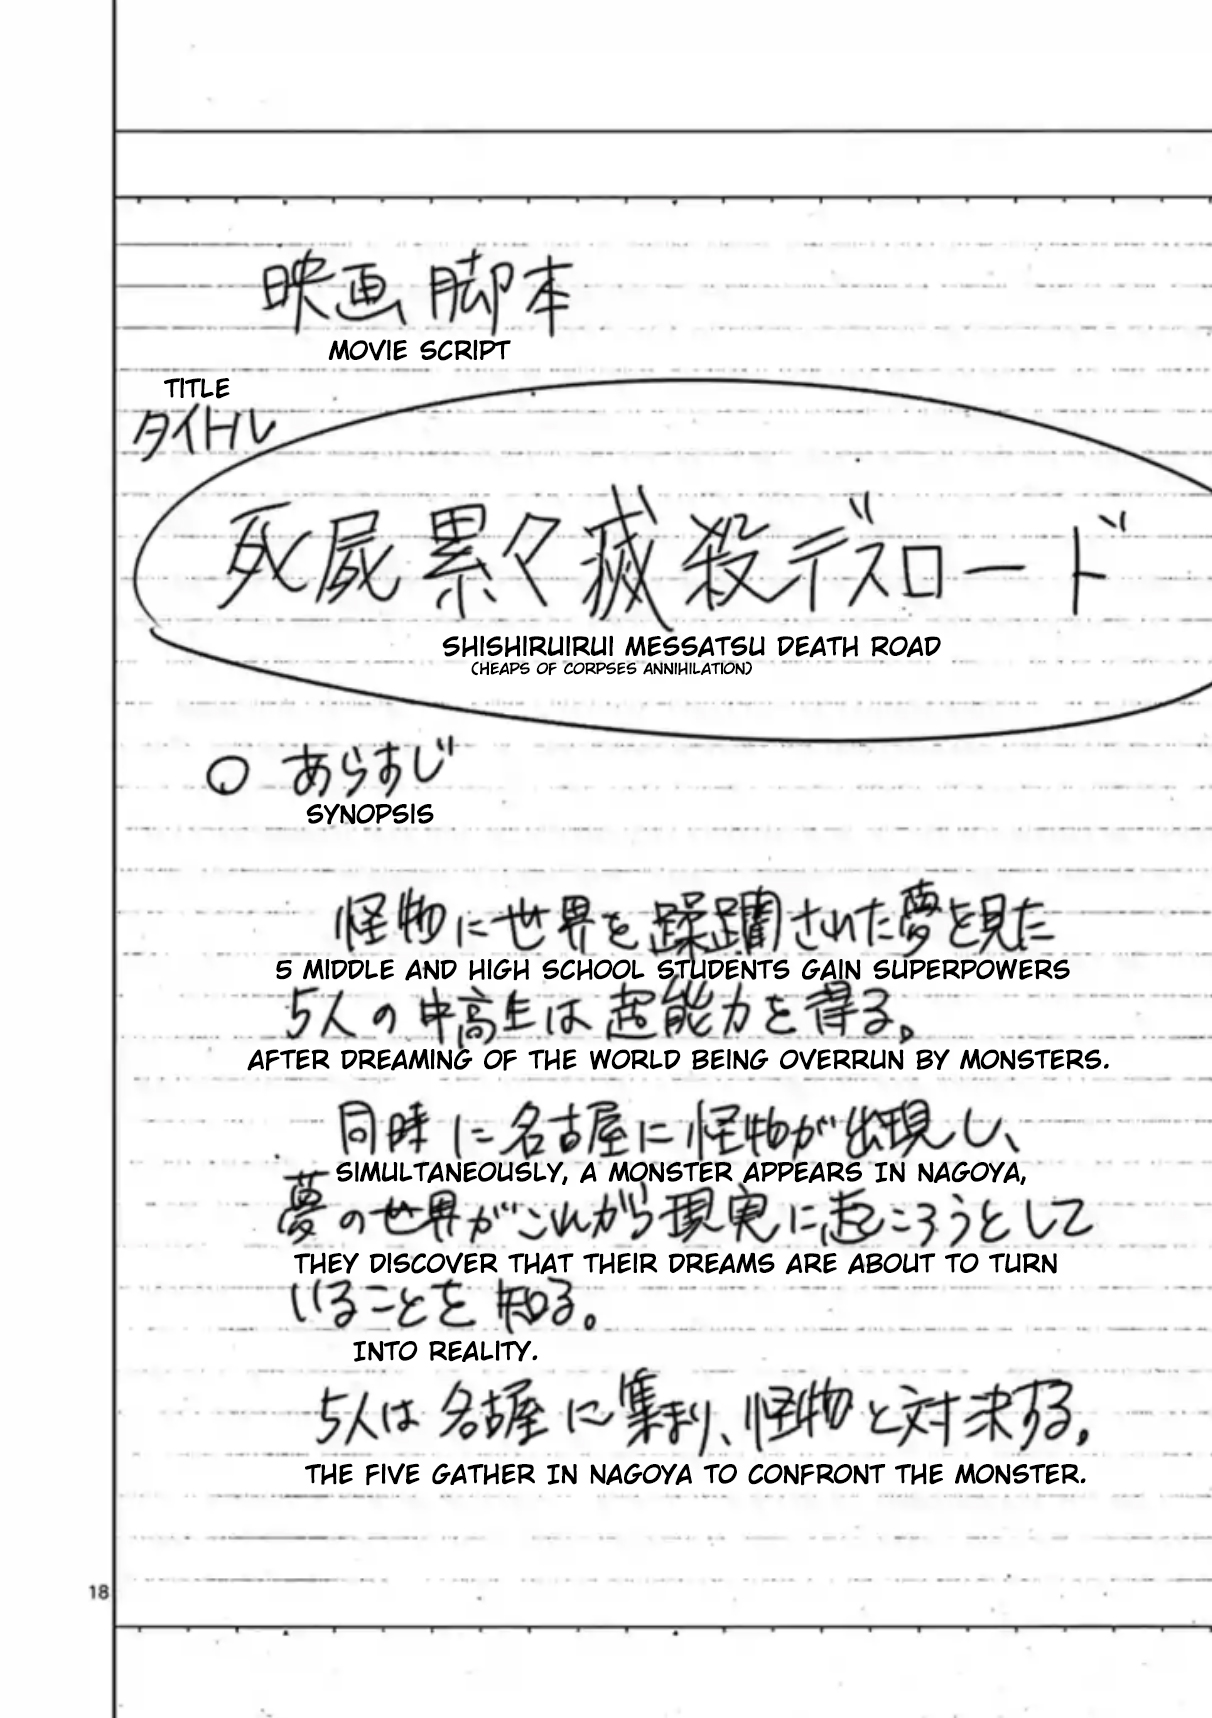 映画脚本
MOVIE SCRIPT
TITLE
タイトル
死屍累々滅殺デスロード
SHISHIRUIRUI MESSATSU DEATH ROAD
(HEAPS OF CORPSES ANNIHILATION)
○ あらすじ
SYNOPSIS
怪物に世界を蹂躙された夢を見た
5 MIDDLE AND HIGH SCHOOL STUDENTS GAIN SUPERPOWERS
5人の中高生は超能力を得る。
AFTER DREAMING OF THE WORLD BEING OVERRUN BY MONSTERS.
同時に名古屋に怪物が出現し、
SIMULTANEOUSLY, A MONSTER APPEARS IN NAGOYA,
夢の世界がこれから現実に起ころうとして
THEY DISCOVER THAT THEIR DREAMS ARE ABOUT TO TURN
いることを知る。
INTO REALITY.
5人は名古屋に集まり、怪物と対決する。
THE FIVE GATHER IN NAGOYA TO CONFRONT THE MONSTER.
18